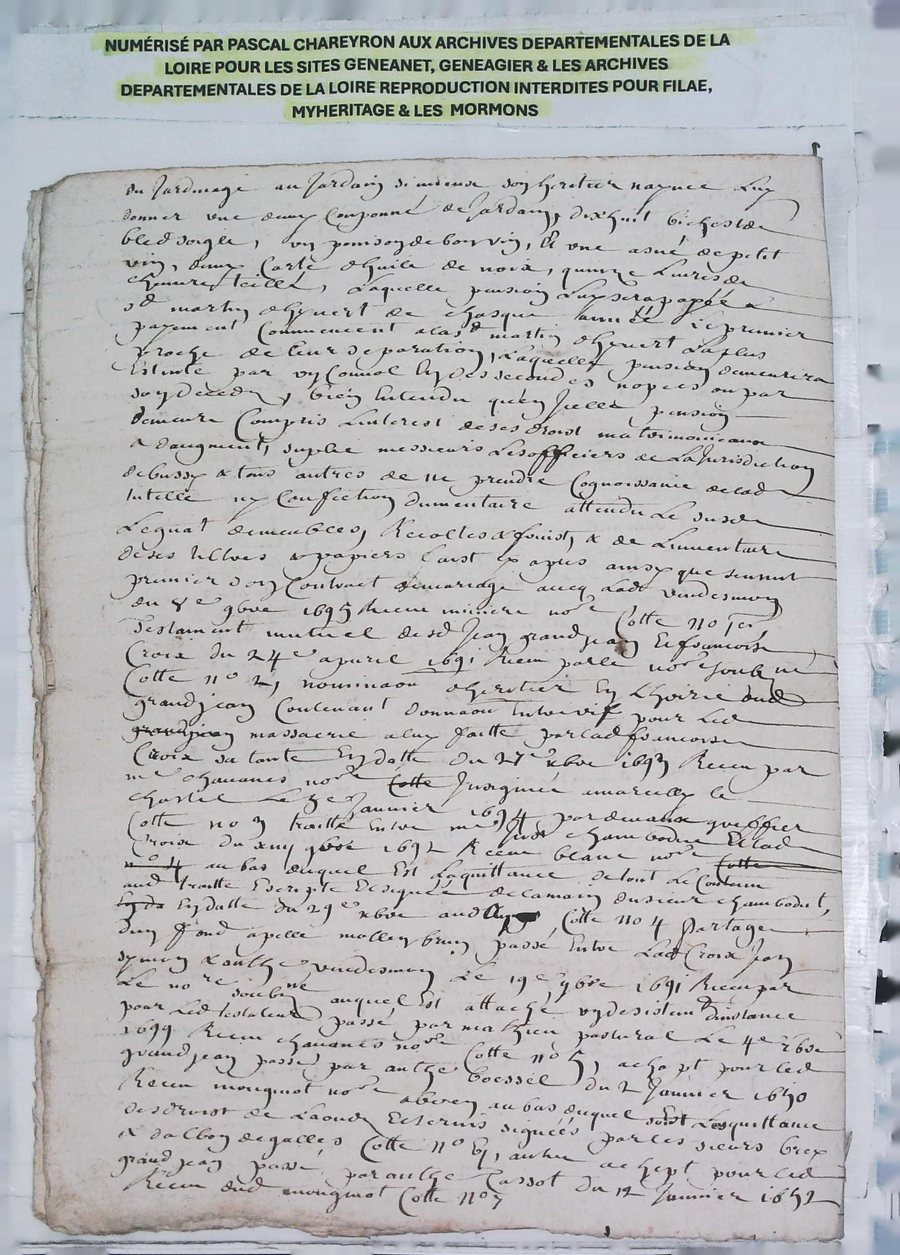 NUMÉRISÉ PAR PASCAL CHAREYRON AUX ARCHIVES DEPARTEMENTALES DE LA
LOIRE POUR LES SITES GENEANET, GENEAGIER & LES ARCHIVES
DEPARTEMENTALES DE LA LOIRE REPRODUCTION INTERDITES POUR FILAE,
MYHERITAGE & LES MORMONS
du Jardinage au Jardain sy mieux son heretier nayme Luy
donner une deux Couponné de Jardain, dixhuit bichest de
bled soigle, un poinson de bon vin, Et une asné de petit
vin, deux Carte dhuile de noix, quinze Livres de
Laquelle pension Luy sera payée a
st martin dhyvert de chasque année Le premier
payement Commencent a la st martin dhyvert La plus
proche de leur separation, Laquelle pension demeurera
Esteinte par un Convol En des secondes nopces ou par
son deceds, bien Entendu quen Jcelle pension
demeure Compris Linterest de ses droist matrimoniaux
& daugment, suplie messieurs Les officiers de La Jurisdiction
de bussy & tous autres de ne prendre Cognoissance de lad
tutelle ny Confection dinventaire attendu Le susd
Legnat de meubles, Recoltes & fruist, & de Linventaire
de ses tiltres & papiers Cy apres ainsy que sensuit
premier son Contract de mariage avecq Lade vendesmon
du 8e 9bre 1695 Receu miniere nore Cotte no 1er
Testament mutuel de sd Jean grandjean Et francoise
Croix du 24e apvril 1691 Receu par le nore soubne
Cotte no 2, nominaon dheretier En Lhoirie dud
grandjean Contenant donnaon Entre vif pour Led
massacrie a luy faitte par lad francoise
Croix sa tante En datte du 27e xbre 1693 Receu par
me chavanes nore Cotte Jnsignuee a marcilly le
chastel Le 8e Janvier 1694 par greffier
Cotte no 3 traitté Entre me Just chambodut Et lad
Croix du xiiij 9bre 1692 Receu blanc nore Cotte
no 4 au bas duquel Est La quittance de tout Le Contenu
aud traitté Escripte Et signée de la main du sieur chambodut,
En datte du 29e xbre aud Cotte no 4 partage
dun fond apelle mollen brun passé Entre Lad Croix Jean
symon & anthe vendesmon Le 19e 9bre 1691 Receu par
Le nore soubne auquel Est attaché un desistem dinstance
pour Led testateur passé par mathieu pastural Le 4e 7bre
1699 Receu chavanes nore Cotte no 5, achept pour led
grandjean passé par anthe boessel du 2 Janvier 1650
Receu mougniot nore au bas duquel sont Les quittance
des droist de Laouds Et servis signéés par les sieurs brex
& dalbon de galles Cotte no 6, autre achept pour led
grandjean passé par anthe Cassot du 12 Janvier 1652
Receu dud mougniot Cotte no 7